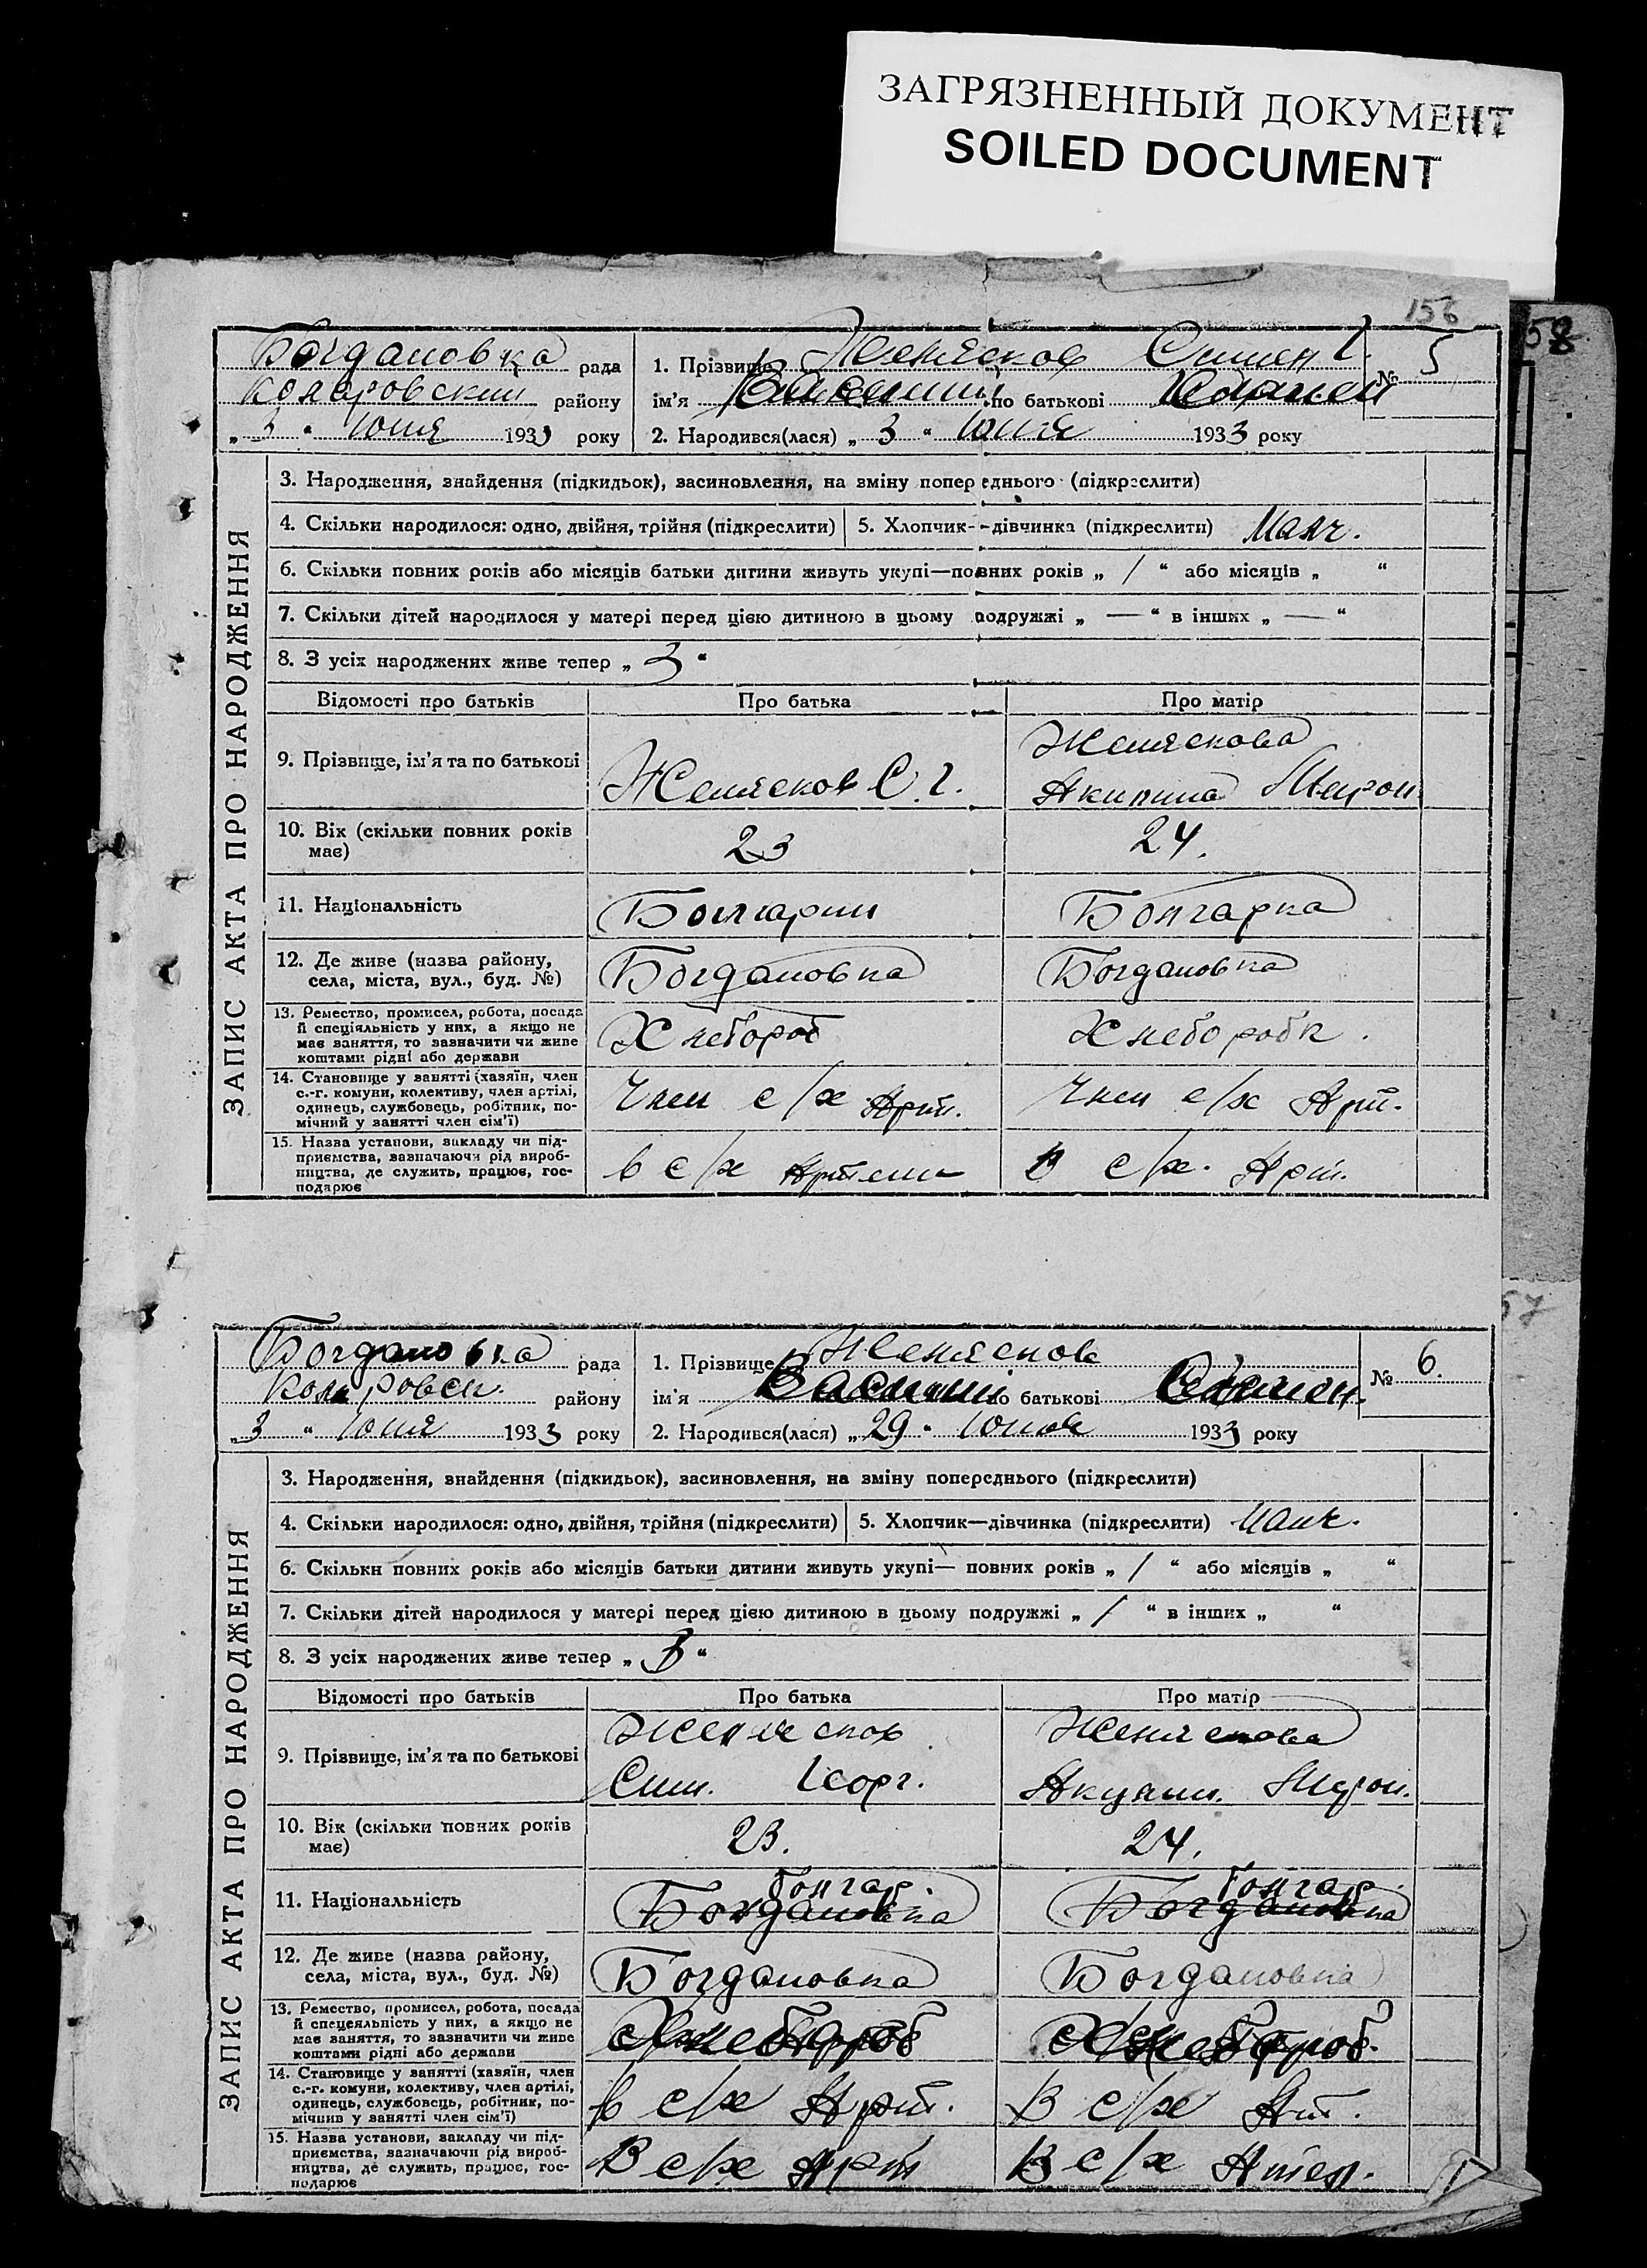 ЗАГРЯЗНЕННЫЙ ДОКУМЕНТ
SOILED DOCUMENT
156
58
Богдановка рада
Коларовский району
„ 3 “ Юля 1933 року
1. Прізвище Желясков Симен Г.
ім'я Василий по батькові
№ 5
2. Народився(лася) „ 3 “ 1933 року
ЗАПИС АКТА ПРО НАРОДЖЕННЯ
3. Народження, знайдення (підкидьок), засиновлення, на зміну попереднього (підкреслити)
4. Скільки народилося: одно, двійня, трійня (підкреслити) 5. Хлопчик--дівчинка (підкреслити) Малч.
6. Скільки повних років або місяців батьки дитини живуть укупі—повних років „ / “ або місяців „ “
7. Скільки дітей народилося у матері перед цією дитиною в цьому подружжі „ — “ в інших „ — “
8. З усіх народжених живе тепер „ 3 “
Відомості про батьків Про батька Про матір
9. Прізвище, ім'я та по батькові Желясков С. Г. Желяскова
Акилина Мирон
10. Вік (скільки повних років
має) 23 24.
11. Національність Болгарин Болгарка
12. Де живе (назва району,
села, міста, вул., буд. №) Богдановка Богдановка
13. Ремество, промисел, робота, посада
й спеціяльність у них, а якщо не
має заняття, то зазначити чи живе
коштами рідні або держави Хлебороб Хлеборобк.
14. Становище у занятті (хазяїн, член
с.-г. комуни, колективу, член артілі,
одинець, службовець, робітник, по-
мічний у занятті член сім'ї) Член с/х Арт. Член с/х Арт.
15. Назва установи, закладу чи під-
приємства, зазначаючи рід вироб-
ництва, де служить, працює, гос-
подарює в с/х Артели в с/х. Арт.
57
Богдановка рада
Коларовск. району
„ 3 “ Юля 1933 року
1. Прізвище Желясков
ім'я Василий по батькові Семен.
№ 6.
2. Народився(лася) „ 29 “ 1933 року
ЗАПИС АКТА ПРО НАРОДЖЕННЯ
3. Народження, знайдення (підкидьок), засиновлення, на зміну попереднього (підкреслити)
4. Скільки народилося: одно, двійня, трійня (підкреслити) 5. Хлопчик—дівчинка (підкреслити) Малч.
6. Скільки повних років або місяців батьки дитини живуть укупі— повних років „ / “ або місяців „ “
7. Скільки дітей народилося у матері перед цією дитиною в цьому подружжі „ / “ в інших „ “
8. З усіх народжених живе тепер „ “
Відомості про батьків Про батька Про матір
9. Прізвище, ім'я та по батькові Желясков Желяскова
Сим. Георг. Акулин. Мирон.
10. Вік (скільки повних років
має) 23. 24.
Болгар. Болгар.
11. Національність Богдановка Богдановка
12. Де живе (назва району,
села, міста, вул., буд. №) Богдановка Богдановка
13. Ремество, промисел, робота, посада
й спецеяльність у них, а якщо не
має заняття, то зазначити чи живе
коштами рідні або держави Хлебороб Хлебороб.
14. Становище у занятті (хазяїн, член
с.-г. комуни, колективу, член артілі,
одинець, службовець, робітник, по-
мічнив у занятті член сім'ї) в с/х Арт. В с/х Ат.
15. Назва установи, закладу чи під-
приємства, зазначаючи рід вироб-
ництва, де служить, працює, гос-
подарює В с/х Арт В с/х Ател.